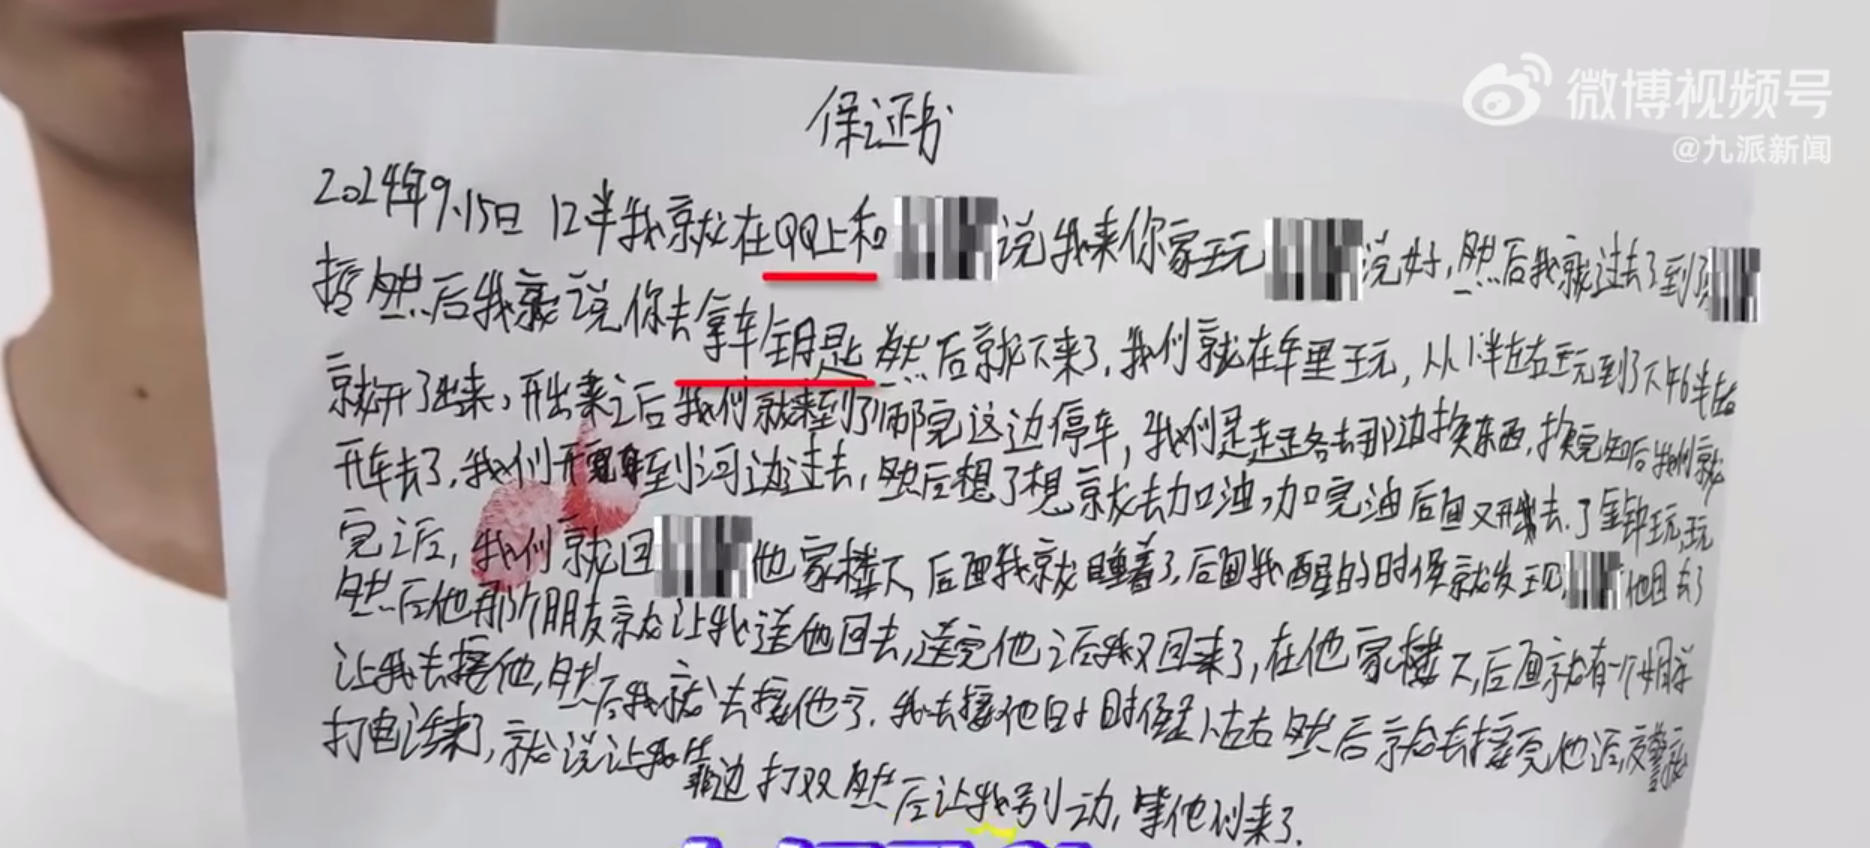 微博视频号
@九派新闻
保证书
2024年9.15日 12半我就在QQ上和 说我来你家玩 说好，然后我就过去了到了
然后我就说你去拿车钥匙 然后就下来了，我们就在车里玩，从1半左右玩到了下午6半左右
就开了出来，开出来之后我们就来到了师完这边停车，我们是走路去那边换东西，换完知后我们就
开车去了，我们开到河边过去，然后想了想就去加油，加完油后面又开去了金钟玩，玩
完之后，我们就回 他家楼下，后面我就睡着了，后面我醒的时候就发现 他回去了
然后他那个朋友就让我送他回去，送完他之后我又回来了，在他家楼下，后面就有一个同学
让我去接他，然后我就去接他了，我去接他的时候是1点左右然后就去接完他后，交警就
打电话来了，就说让我靠边打双然后让我别动，等他们来了.